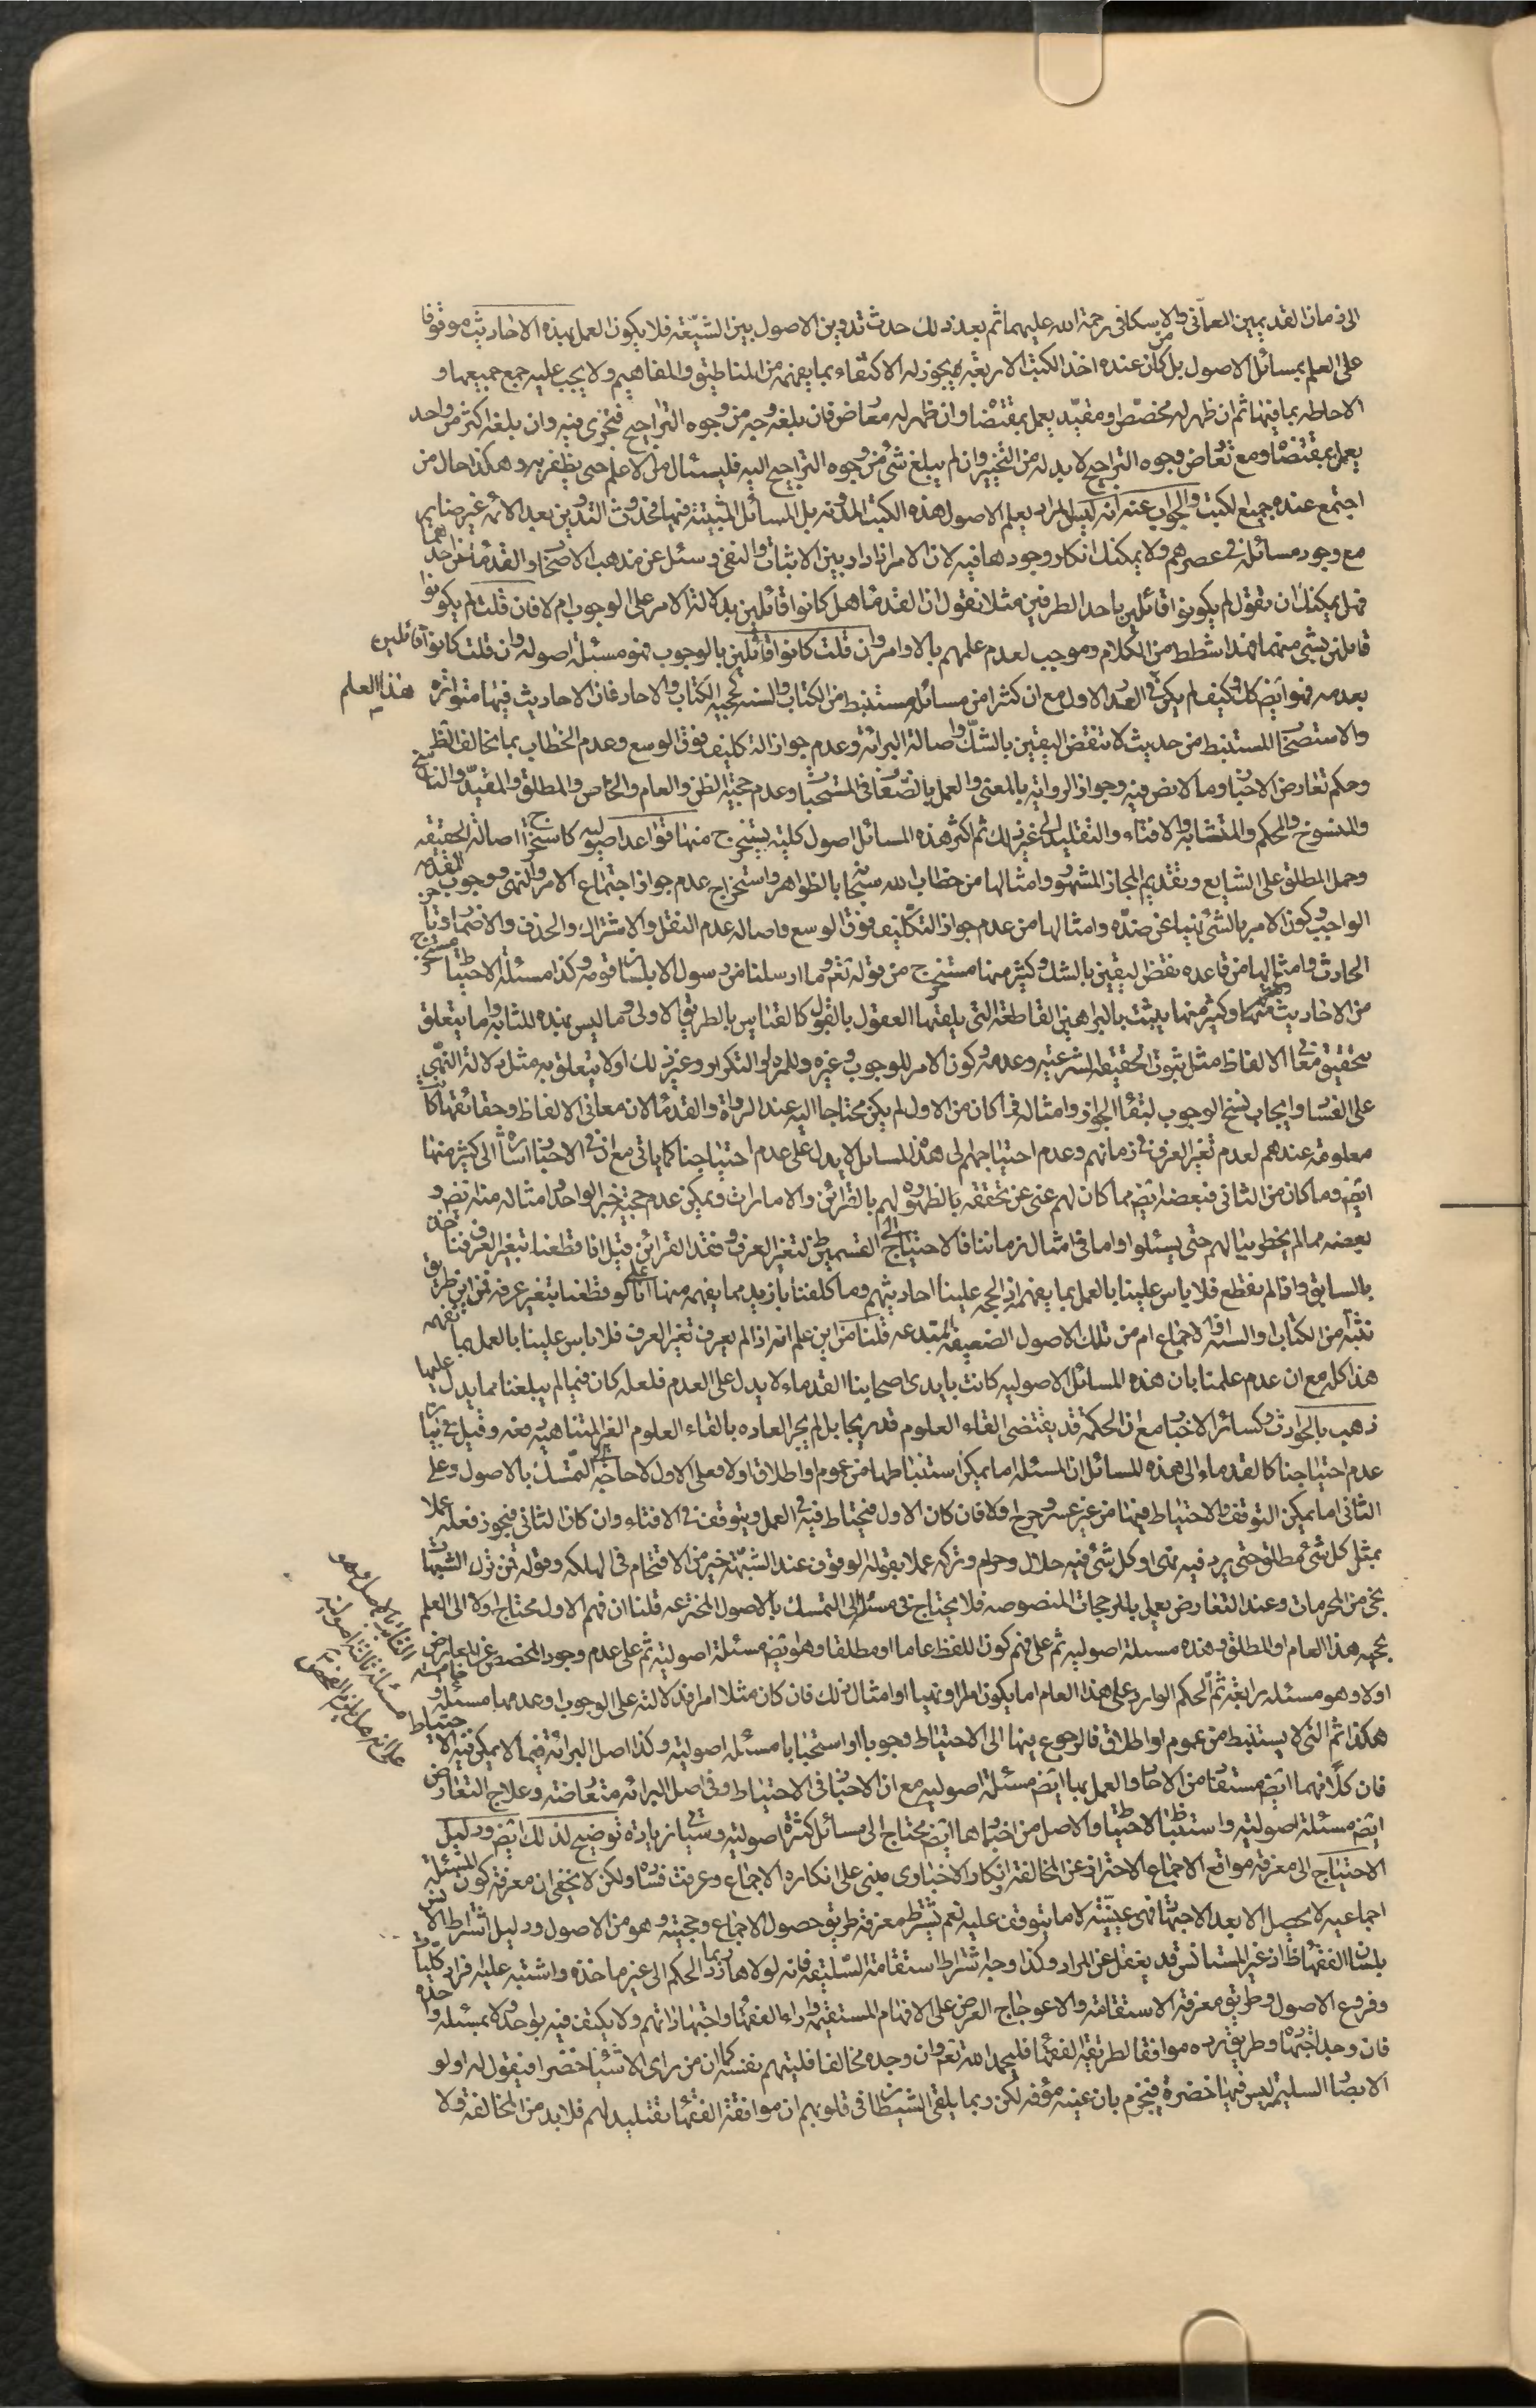 الى زمان القديمين العمانى والاسكافى رحمة الله عليهما ثم بعد ذلك حدث تدوين الاصول بين الشيعة فلا يكون العمل بهذه الاخاديث موقوفا
على العلم بمسائل الاصول بل من كان عنده اخذ الكتب الاربعة يجوز له الاكتفاء بما يفهمه من المناطيق والمفاهيم ولا يجب عليه جمع جميعها و
الاحاطه بما فيها ثم ان ظهر له مخصص او مقيد يعمل بمقتضاه وان ظهر له معارض فان بلغه وجه من وجوه التراجيح فتحرى فيه وان بلغه اكثر من واحد
يعمل بمقتضاه ومع تعارض وجوه التراجيح لا بد له من التخيير وان لم يبلغ شئ من وجوه التراجيح اليه فليسئال من الاعلم حتى يظفر به وهكذا حال من
اجتمع عنده جميع الكتب والجواب عنه انه ليس المراد بعلم الاصول هذه الكتب المدونه بل المسائل المثبتة فيها فحدوث التدوين بعد الائمه غير ضاير
مع وجود مسائله فى عصرهم ولا يمكنك انكار وجودها فيه لان الامر اذا دار بين الاثبات والنفى وسئل عن مذهب الاصحاب والقدماء من احدهما
فهل يمكنك ان تقول لم يكونوا قائلين باحد الطرفين مثلا نقول ان القدماء هل كانوا قائلين بدلالة الامر على الوجوب ام لا فان قلت لم يكونوا
قائلين بشئ منهما فهذا شطط من الكلام وموجب لعدم علمهم بالاوامر وان قلت كانوا قائلين بالوجوب فهو مسئلة اصوله وان قلت كانوا قائلين
بعدمه فهو ايض كك وكيف لم يكن فى الصدر الاول مع ان كثرا من مسائله مستنبط من الكتاب والسنه كحجيه الكتاب والاحاد فان الاحاديث فيها متواتره هذا العلم
والاستصحاب المستنبط من حديث لا تنقض اليقين بالشك واصالة البرائة وعدم جواز التكليف فوق الوسع وعدم الخطاب بما يخالف الظ
وحكم تعارض الاخبار وما لا نص فيه وجواز الرواية بالمعنى والعمل بالضعاف فى المستحبات وعدم حجية الظن والعام والخاص والمطلق والمقيد والناسخ
والمنسوخ والمحكم والمتشابه والافتاء والتقليد الى غير ذلك ثم اكثر هذه المسائل اصول كلية يستخرج منها قواعد اصوليه كاستخراج اصالة الحقيقه
وحمل المطلق على الشايع وتقديم المجاز المشهور وامثالها من خطاب الله سبحانه بالظواهر واستخراج عدم جواز اجتماع الامر والنهى ووجوب المقدمه
الواجب وكون الامر بالشئ نهيا عن ضده وامثالها من عدم جواز التكليف فوق الوسع واصاله عدم النقل والاشتراك والحذف والاضمار وتاخر
الحادث وامثالها من قاعده نقض اليقين بالشك وكثير منها مستخرج من قوله تعم وما ارسلنا من رسول الا بلسان قومه وكذا مسئلة الاحتياط مستخرج
من الاحاديث وكثير منها يثبت بالبراهين القاطعة التى يلقيها العقول بالقبول كالقياس بالطريق الاولى وما ليس بهذه المثابه واما يتعلق
بتحقيق معانى الالفاظ مثل ثبوت الحقيقه الشرعيه وعدمه وكون الامر للوجوب وغيره وللمره او التكرار وغير ذلك او لا يتعلق به مثل دلالة النهى
على الفساد وايجاب نسخ الوجوب لبقاء الجواز وامثاله فما كان من الاول لم يكن محتاجا اليه عند الرواة والقدماء لان معانى الالفاظ وحقائقها كانت
معلومة عندهم لعدم تغير العرف فى زمانهم وعدم احتياجهم الى هذه المسائل لا يدل على عدم احتياجنا كما ياتى مع ان فى الاخبار اشارة الى كثير منها
ايض وما كان من الثانى فبعضه ايض مما كان لهم غنى عن تحققه بالظهوره لهم بالقرائن والامارات ويمكن عدم حجية خبر الواحد وامثاله منه ايض و
بعضه مما لم يخطر ببالهم حتى يسئلوا واما فى امثال زماننا فالاحتياج الى القسمين ظ لتغير العرف وفقد القرائن قيل اذا قطعنا بتغير العرف فناخذ
بالسابق واذا لم نقطع فلا باس علينا بالعمل بما يفهمه اذ الحجه علينا احاديثهم وما كلفنا بازيد مما يفهمه منها اذا لو قطعنا بتغير عرفه فمن اى طريق
نثبته من الكتاب او السنة او الاجماع ام من تلك الاصول الضعيفه المبتدعه قلنا من اين علم انه اذا لم يعرف تغير العرف فلا باس علينا بالعمل بما نفهمه
هذا كله مع ان عدم علمنا بان هذه المسائل الاصوليه كانت بايدى اصحابنا القدماء لا يدل على العدم فلعله كان فيما لم يبلغنا مما يدل عليها
ذهب بالحوادث وكسائر الاخبار مع ان الحكمة قد يقتضى القاء العلوم تدريجا بل لم يجر العاده بالقاء العلوم الغير المتناهيه دفعه وقيل فى بيان
عدم احتياجنا كالقدماء الى هذه المسائل ان المسئله اما يمكن استنباطها من عموم او اطلاق اولا فعلى الاول لا حاجة الى التمسك بالاصول وعلى
الثانى اما يمكن التوقف والاحتياط فيها من غير عسر وحرج اولا فان كان الاول فيحتاط فيه فى العمل ويتوقف فى الافتاء وان كان الثانى فيجوز فعله عملا
بمثل كل شئ مطلق حتى يرد فيه نهى او كل شئ فيه حلال وحرام وتركه عملا بقوله الوقوف عند الشبهة خير من الاقتحام فى الهلكه وقوله فمن ترك الشبهات
نجى من المحرمات وعند التعارض يعمل بالمرجحات المنصوصه فلا يحتاج فى مسئله الى التمسك بالاصول المخترعه قلنا ان فهم الاول محتاج اولا الى العلم
بحجيه هذا العام او المطلق وهذه مسئلة اصوليه ثم على فهم كون اللفظ عاما او مطلقا وهو ايض مسئلة اصولية ثم على عدم وجود المخصص
اولا وهو مسئله رابعة ثم الحكم الوارد على هذا العام اما يكون امرا او نهيا او امثال ذلك فان كان مثلا امرا فدلالته على الوجوب او عدمها مسئله خامسة
هكذا ثم التى لا يستنبط من عموم او اطلاق فالرجوع فيها الى الاحتياط وجوبا او استحبابا مسئله اصولية وكذا اصل البرائة فيما لا يمكن فيه الاحتياط
فان كلا منهما ايض مستفاد من الاخبار والعمل بها ايض مسئلة اصوليه مع ان الاخبار فى الاحتياط وفى اصل البرائه متعارضة وعلاج التعارض
ايض مسئلة اصولية واستنباط الاحتياط والاصل من اخبارهما ايض محتاج الى مسائل كثيرة اصولية وسياتى زيادة توضيح لذلك ايض ودليل
الاحتياج الى معرفة مواقع الاجماع الاحتراز عن المخالفة وانكار الاخبارى مبنى على انكاره الاجماع وعرفت فساده ولكن لا يخفى ان معرفة كون المسئلة
اجماعيه لا يحصل الا بعد الاجتهاد فهى عينيته لا ما يتوقف عليه نعم يشترط معرفة طريق حصول الاجماع وحجيته وهو من الاصول ودليل اشتراط الانس
بلسان الفقهاء ظ اذ غير المستانس قد يغفل عن المراد وكذا وجه اشتراط استقامة السليقه فانه لولاها ربما رد الحكم الى غير ماخذه واشتبه عليه افراد كليات
وفروع الاصول وطريق معرفة الاستقامة والاعوجاج العرض على الافهام المستقيمه واراء الفقهاء واجتهاداتهم ولا يكتفى فيه بواحد ولا بمسئله واحده
فان وجد اجتهاده وطريقه موافقا لطريقة الفقهاء فليحمد الله تعم وان وجده مخالفا فليتهم نفسه كما ان من راى الاشياء خضرا فيقول له اولو
الابصار السليمه ليس فيها خضرة فيجزم بان عينيه مؤفه لكن ربما يلقى الشيطان فى قلوبهم ان موافقة الفقهاء تقليد لهم فلا بد من المخالفة ولا